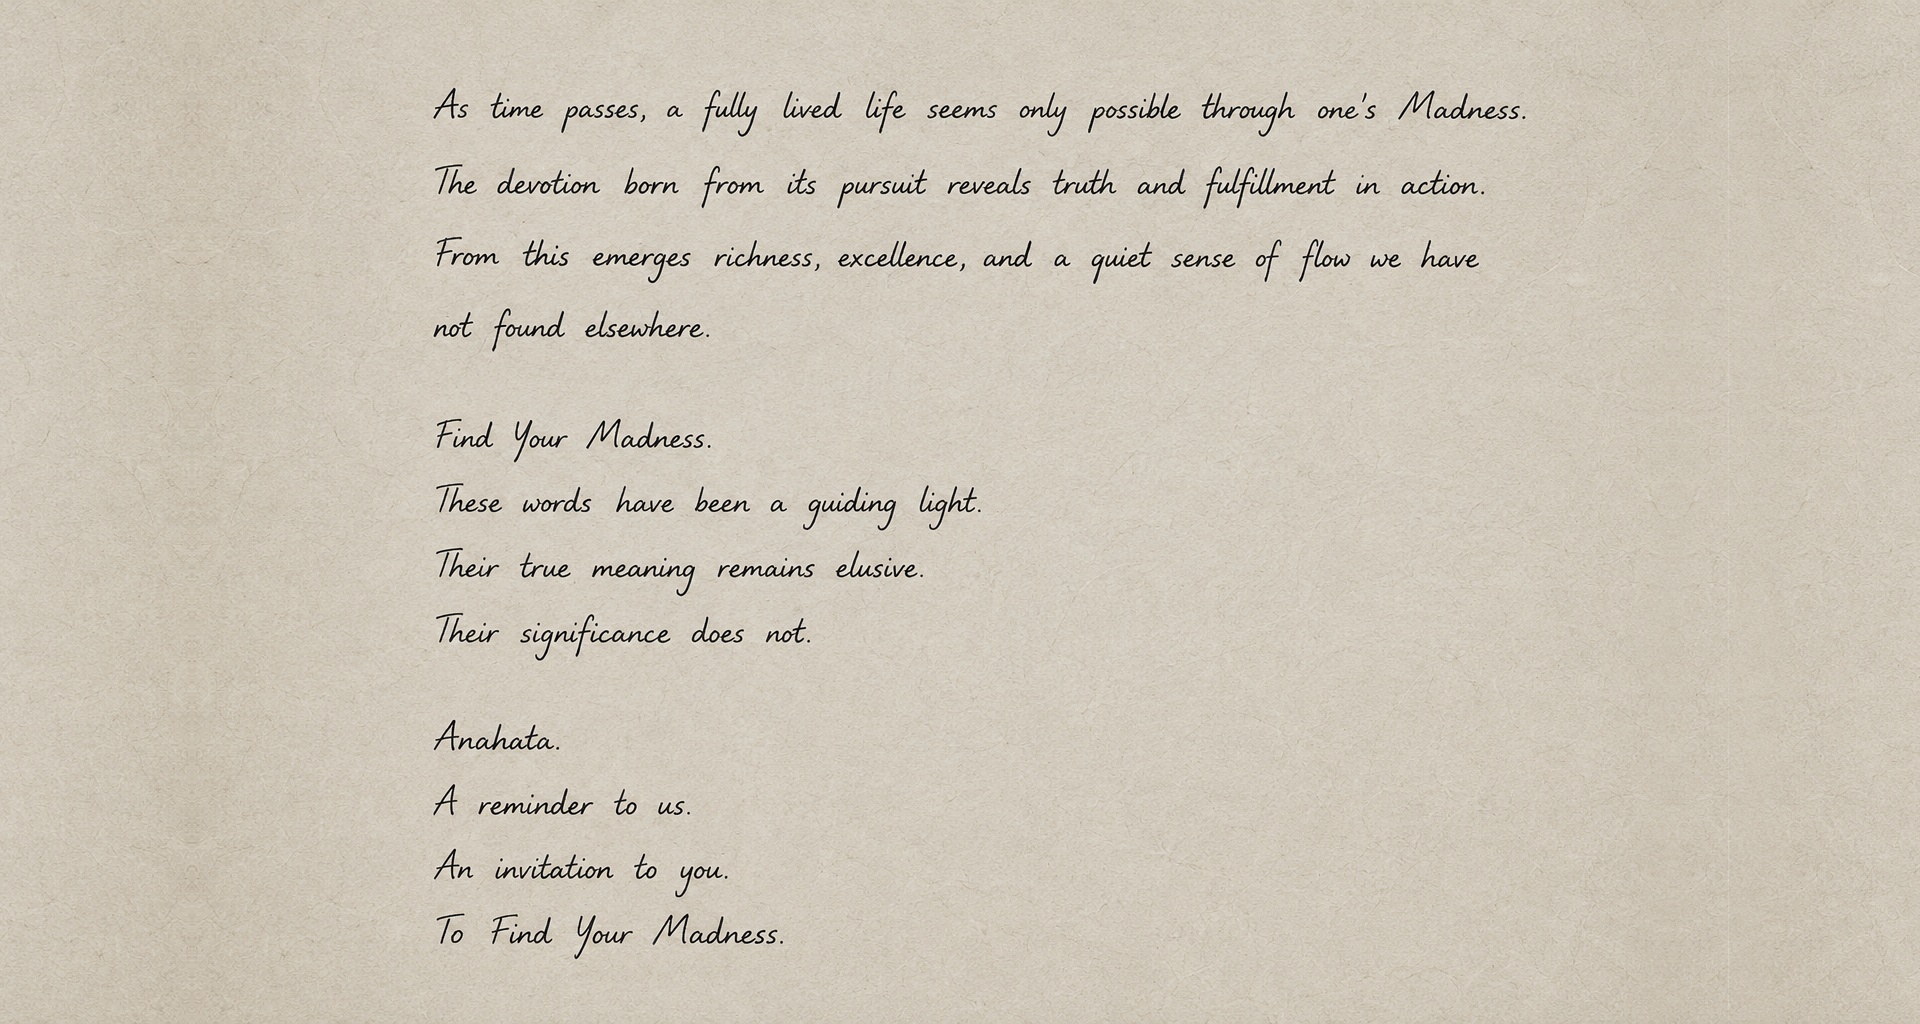 As time passes, a fully lived life seems only possible through one's Madness.
The devotion born from its pursuit reveals truth and fulfillment in action.
From this emerges richness, excellence, and a quiet sense of flow we have
not found elsewhere.
Find Your Madness.
These words have been a guiding light.
Their true meaning remains elusive.
Their significance does not.
Anahata.
A reminder to us.
An invitation to you.
To Find Your Madness.